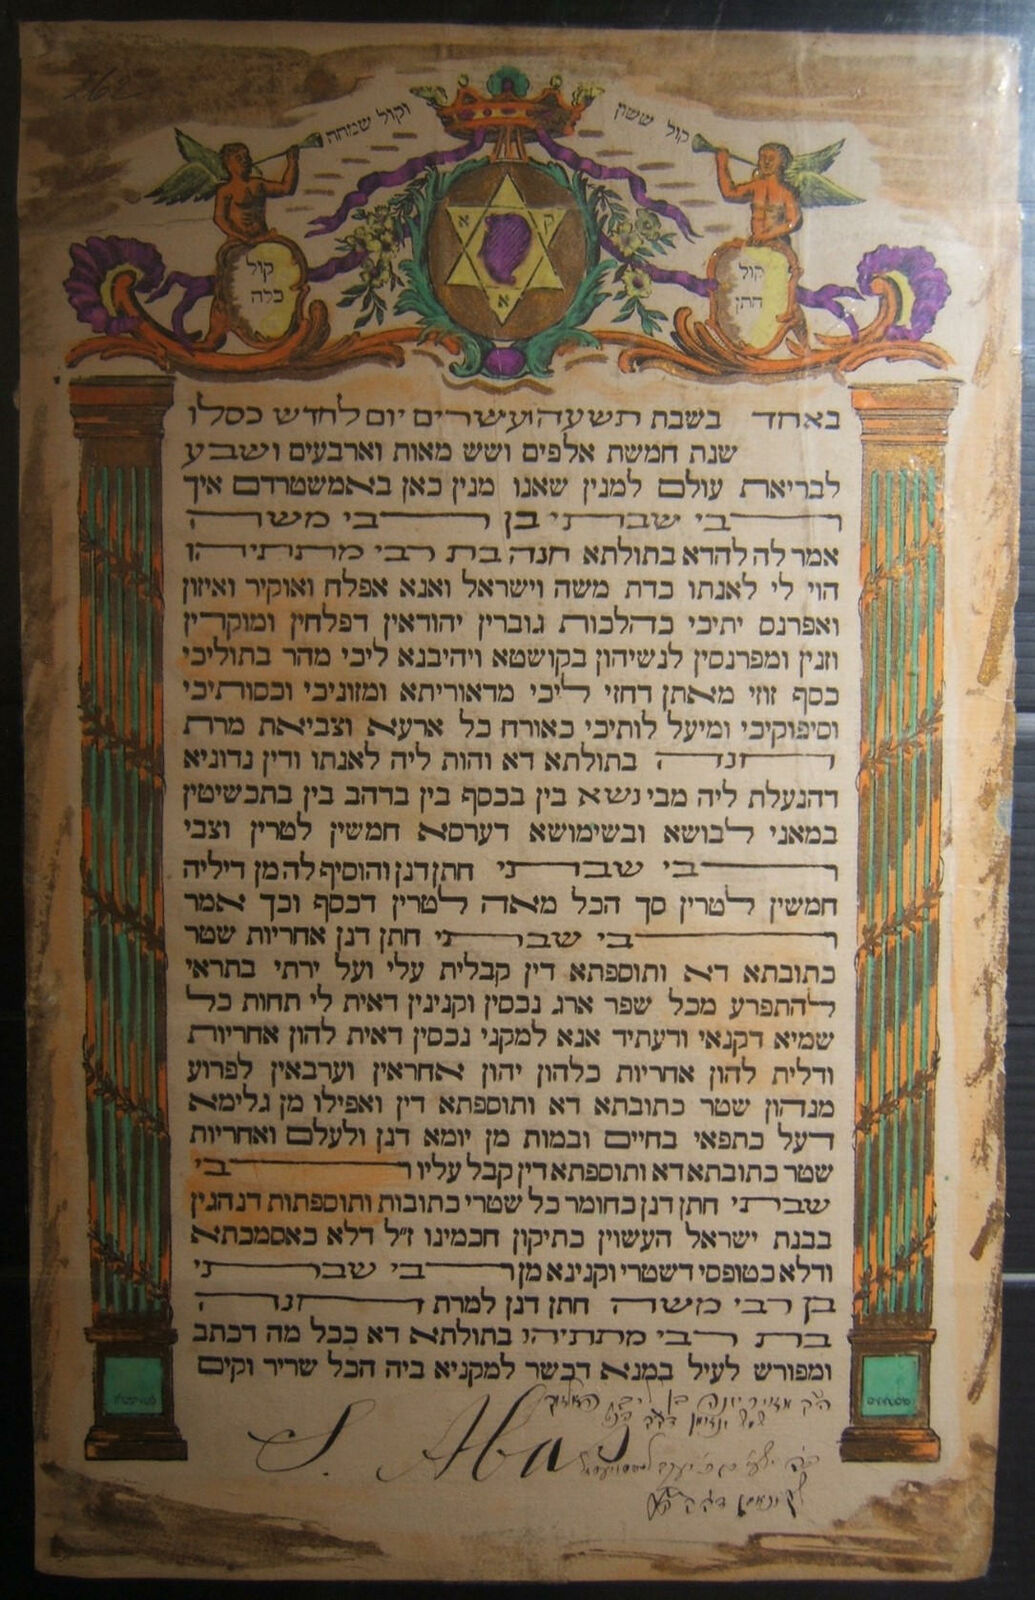 162
קול ששון
וקול שמחה
קול
חתן
קול
כלה
ק
א
א
באחד בשבת תשעה ועשרים יום לחדש כסלו
שנת חמשת אלפים ושש מאות וארבעים ושבע
לבריאת עולם למנין שאנו מנין כאן באמשטרדם איך
רבי שבתי בן רבי משה
אמר לה להדא בתולתא חנה בת רבי מתתיהו
הוי לי לאנתו כדת משה וישראל ואנא אפלח ואוקיר ואיזון
ואפרנס יתיכי כהלכות גוברין יהודאין דפלחין ומוקרין
וזנין ומפרנסין לנשיהון בקושטא ויהיבנא ליכי מהר בתוליכי
כסף זוזי מאתן דחזי ליכי מדאוריתא ומזוניכי וכסותיכי
וסיפוקיכי ומיעל לותיכי כאורח כל ארעא וצביאת מרת
חנה בתולתא דא והות ליה לאנתו ודין נדוניא
דהנעלת ליה מבי נשא בין בכסף בין בדהב בין בתכשיטין
במאני לבושא ובשימושא דערסא חמשין לטרין וצבי
רבי שבתי חתן דנן והוסיף לה מן דיליה
חמשין לטרין סך הכל מאה לטרין דכסף וכך אמר
רבי שבתי חתן דנן אחריות שטר
כתובתא דא ותוספתא דין קבלית עלי ועל ירתי בתראי
להתפרע מכל שפר ארג נכסין וקנינין דאית לי תחות כל
שמיא דקנאי ודעתיד אנא למקני נכסין דאית להון אחריות
ודלית להון אחריות כלהון יהון אחראין וערבאין לפרוע
מנהון שטר כתובתא דא ותוספתא דין ואפילו מן גלימא
דעל כתפאי בחיים ובמות מן יומא דנן ולעלם ואחריות
שטר כתובתא דא ותוספתא דין קבל עליו רבי
שבתי חתן דנן כחומר כל שטרי כתובות ותוספתות דנהגין
בבנת ישראל העשוין כתיקון חכמינו ז״ל דלא כאסמכתא
ודלא כטופסי דשטרי וקנינא מן רבי שבתי
בן רבי משה חתן דנן למרת חנה
בת רבי מתתיהו בתולתא דא ככל מה דכתב
ומפורש לעיל במנא דכשר למקניא ביה הכל שריר וקים
S. Abas